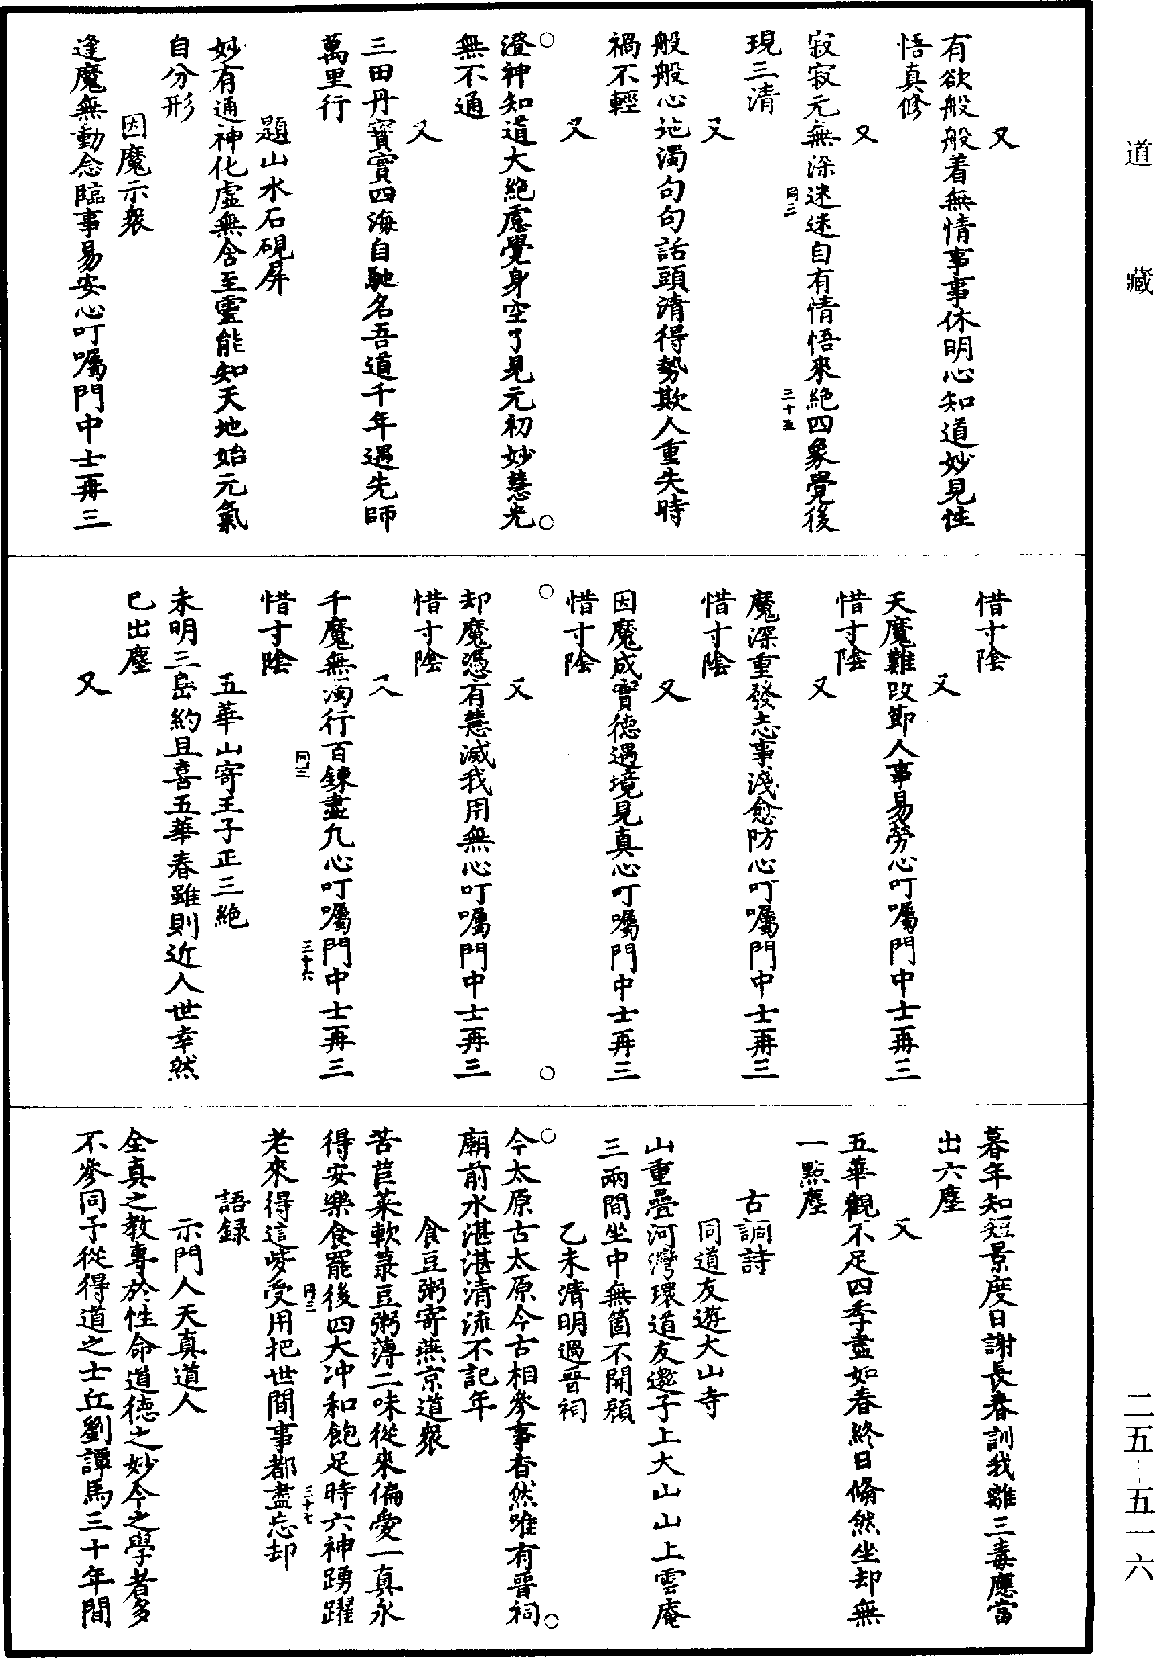 道藏
二五-五一六
又
有欲般般着無情事事休明心知道妙見性
悟真修
又
寂寂元無染迷迷自有情悟來絶四象覺後
現三清
又
般般心地濁句句話頭清得勢欺人重失時
禍不輕
又
澄神知道大絶慮覺身空了見元初妙慧光
無不通
又
三田丹寶實四海自馳名吾道千年遇先師
萬里行
題山水石硯屏
妙有通神化虛無含至靈能知天地始元氣
自分形
因魔示衆
逢魔無動念臨事易安心叮囑門中士再三
惜寸陰
又
天魔難改節人事易勞心叮囑門中士再三
惜寸陰
又
魔深重發志事淺愈防心叮囑門中士再三
惜寸陰
又
因魔成實德遇境見真心叮囑門中士再三
惜寸陰
又
却魔憑有慧滅我用無心叮囑門中士再三
惜寸陰
又
千魔無濁行百鍊盡凡心叮囑門中士再三
惜寸陰
五華山寄王子正三絶
未明三島約且喜五華春雖則近人世幸然
已出塵
又
暮年知短景度日謝長春訓我離三毒應當
出六塵
又
五華觀不足四季盡如春終日翛然坐却無
一點塵
古調詩
同道友遊大山寺
山重疊河灣環道友邀予上大山山上雲庵
三兩間坐中無箇不開顔
乙未清明過晉祠
今太原古太原今古相參事杳然唯有晉祠
廟前水湛湛清流不記年
食豆粥寄燕京道衆
苦苣菜軟菉豆粥薄二味從來偏愛一真永
得安樂食罷後四大冲和飽足時六神踴躍
老來得這嘮受用把世間事都盡忘却
語録
示門人天真道人
全真之教專於性命道德之妙今之學者多
不參同予從得道之士丘劉譚馬三十年間
同二
三十五
同三
三十六
同三
三十七